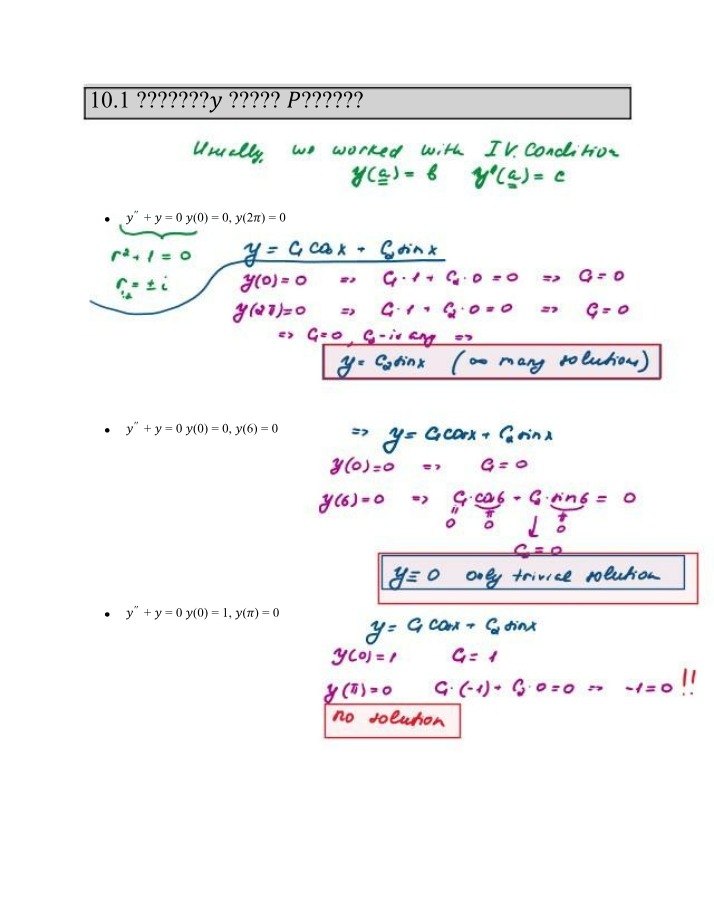 10.1 ???????y ????? P??????
Usually, we worked with I.V. Condition
y(a) = b y'(a) = c
• y″ + y = 0 y(0) = 0, y(2π) = 0
r² + 1 = 0
r₁,₂ = ± i
y = C₁ cos x + C₂ sin x
y(0)=0 => C₁·1 + C₂·0 = 0 => C₁ = 0
y(2π)=0 => C₁·1 + C₂·0 = 0 => C₁ = 0
=> C₁=0, C₂-is any =>
y = C₂ sin x (∞ many solutions)
• y″ + y = 0 y(0) = 0, y(6) = 0
=> y = C₁ cos x + C₂ sin x
y(0)=0 => C₁ = 0
y(6)=0 => C₁·cos6 + C₂·sin6 = 0
" ≠ ↓ ≠
0 0 0
C₂ = 0
y ≡ 0 only trivial solution
• y″ + y = 0 y(0) = 1, y(π) = 0
y = C₁ cos x + C₂ sin x
y(0)=1 C₁ = 1
y(π)=0 C₁·(-1) + C₂·0 = 0 => -1 = 0 !!
no solution